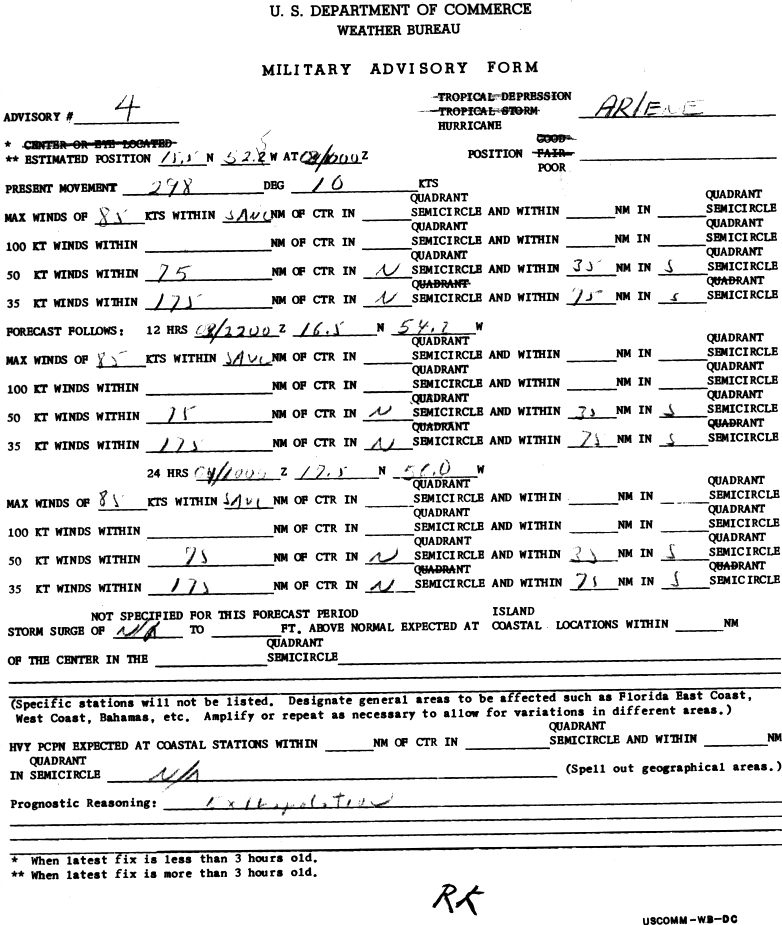 U. S. DEPARTMENT OF COMMERCE
WEATHER BUREAU
MILITARY ADVISORY FORM
TROPICAL DEPRESSION
ADVISORY # 4 TROPICAL STORM ARLENE
HURRICANE
* CENTER OR EYE LOCATED GOOD
** ESTIMATED POSITION 15.5 N W AT Z POSITION FAIR
POOR
PRESENT MOVEMENT 298 DEG 10 KTS
QUADRANT QUADRANT
MAX WINDS OF 85 KTS WITHIN NM OF CTR IN SEMICIRCLE AND WITHIN NM IN SEMICIRCLE
QUADRANT QUADRANT
100 KT WINDS WITHIN NM OF CTR IN SEMICIRCLE AND WITHIN NM IN SEMICIRCLE
QUADRANT QUADRANT
50 KT WINDS WITHIN 75 NM OF CTR IN N SEMICIRCLE AND WITHIN 35 NM IN S SEMICIRCLE
QUADRANT QUADRANT
35 KT WINDS WITHIN 175 NM OF CTR IN N SEMICIRCLE AND WITHIN 75 NM IN S SEMICIRCLE
FORECAST FOLLOWS: 12 HRS 08/2200 Z 16.5 N 54.2 W
QUADRANT QUADRANT
MAX WINDS OF 85 KTS WITHIN NM OF CTR IN SEMICIRCLE AND WITHIN NM IN SEMICIRCLE
QUADRANT QUADRANT
100 KT WINDS WITHIN NM OF CTR IN SEMICIRCLE AND WITHIN NM IN SEMICIRCLE
QUADRANT QUADRANT
50 KT WINDS WITHIN 75 NM OF CTR IN N SEMICIRCLE AND WITHIN 35 NM IN S SEMICIRCLE
QUADRANT QUADRANT
35 KT WINDS WITHIN 175 NM OF CTR IN N SEMICIRCLE AND WITHIN 75 NM IN S SEMICIRCLE
24 HRS Z 17.5 N 56.0 W
QUADRANT QUADRANT
MAX WINDS OF 85 KTS WITHIN NM OF CTR IN SEMICIRCLE AND WITHIN NM IN SEMICIRCLE
QUADRANT QUADRANT
100 KT WINDS WITHIN NM OF CTR IN SEMICIRCLE AND WITHIN NM IN SEMICIRCLE
QUADRANT QUADRANT
50 KT WINDS WITHIN 75 NM OF CTR IN N SEMICIRCLE AND WITHIN 35 NM IN S SEMICIRCLE
QUADRANT QUADRANT
35 KT WINDS WITHIN 175 NM OF CTR IN N SEMICIRCLE AND WITHIN 75 NM IN S SEMICIRCLE
NOT SPECIFIED FOR THIS FORECAST PERIOD ISLAND
STORM SURGE OF N/A TO FT. ABOVE NORMAL EXPECTED AT COASTAL LOCATIONS WITHIN NM
QUADRANT
OF THE CENTER IN THE SEMICIRCLE
(Specific stations will not be listed. Designate general areas to be affected such as Florida East Coast,
West Coast, Bahamas, etc. Amplify or repeat as necessary to allow for variations in different areas.)
QUADRANT
HVY PCPN EXPECTED AT COASTAL STATIONS WITHIN NM OF CTR IN SEMICIRCLE AND WITHIN NM
QUADRANT
IN SEMICIRCLE N/A (Spell out geographical areas.)
Prognostic Reasoning: Extrapolation
* When latest fix is less than 3 hours old.
** When latest fix is more than 3 hours old.
RK
USCOMM-WB-DC